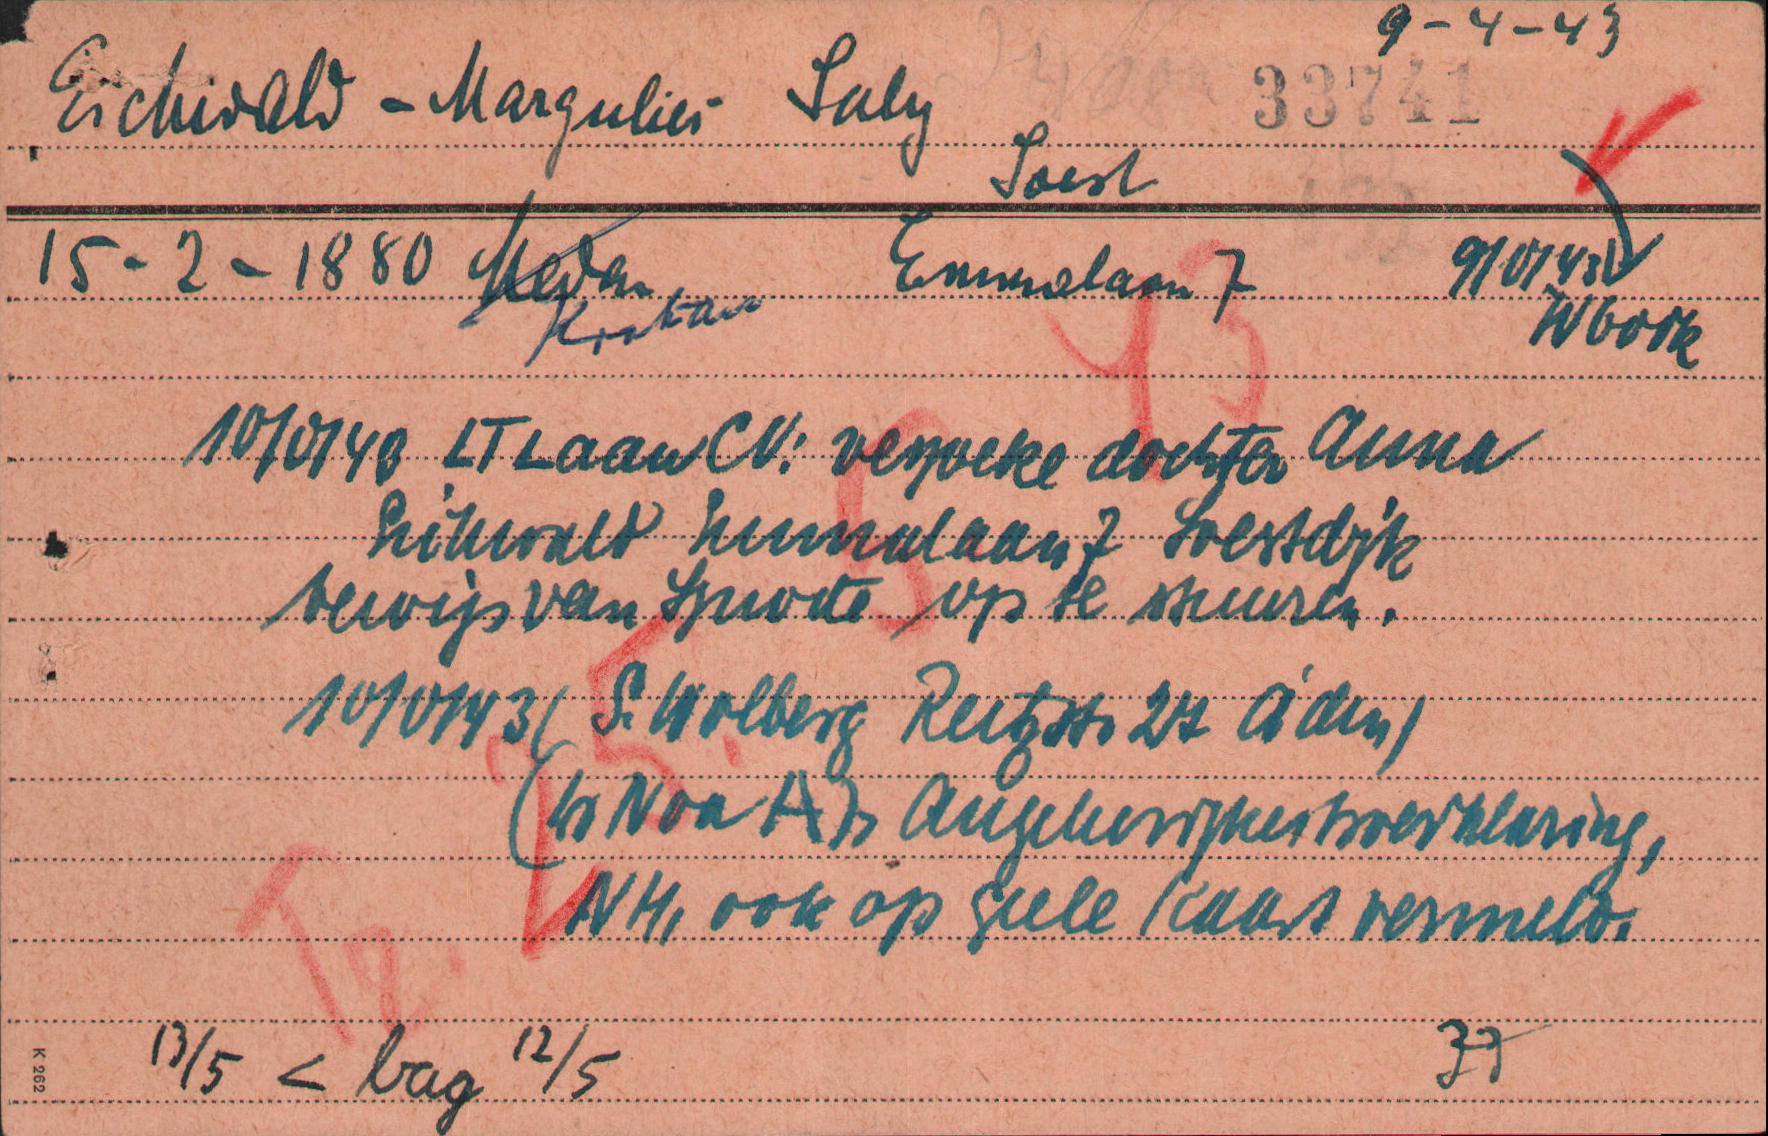 9-4-43
Eichwald - Margulies Saly 33741
Soest
15-2-1880 Medan Emmalaan 7 9/5/43
Krakau Wbork
10/5/43 LTLaan CV: verzoeke dochter Anna
Eichwald Emmalaan 7 Soestdijk
bewijs van te sturen.
10/5/43 (S. Wolberg Reitzstr 27 A'dam)
NH, ook op gele kaart vermeld.
Tr. 25. 5 43
13/5 < bag 12/5 37
K 262